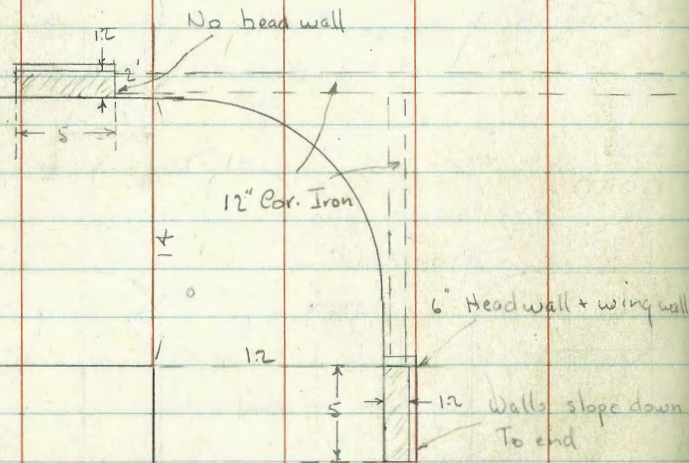 No head wall
12
2'
5
12" Cor. Iron
14
6" Headwall + wing wall
12
5
12
Walls slope down
To end